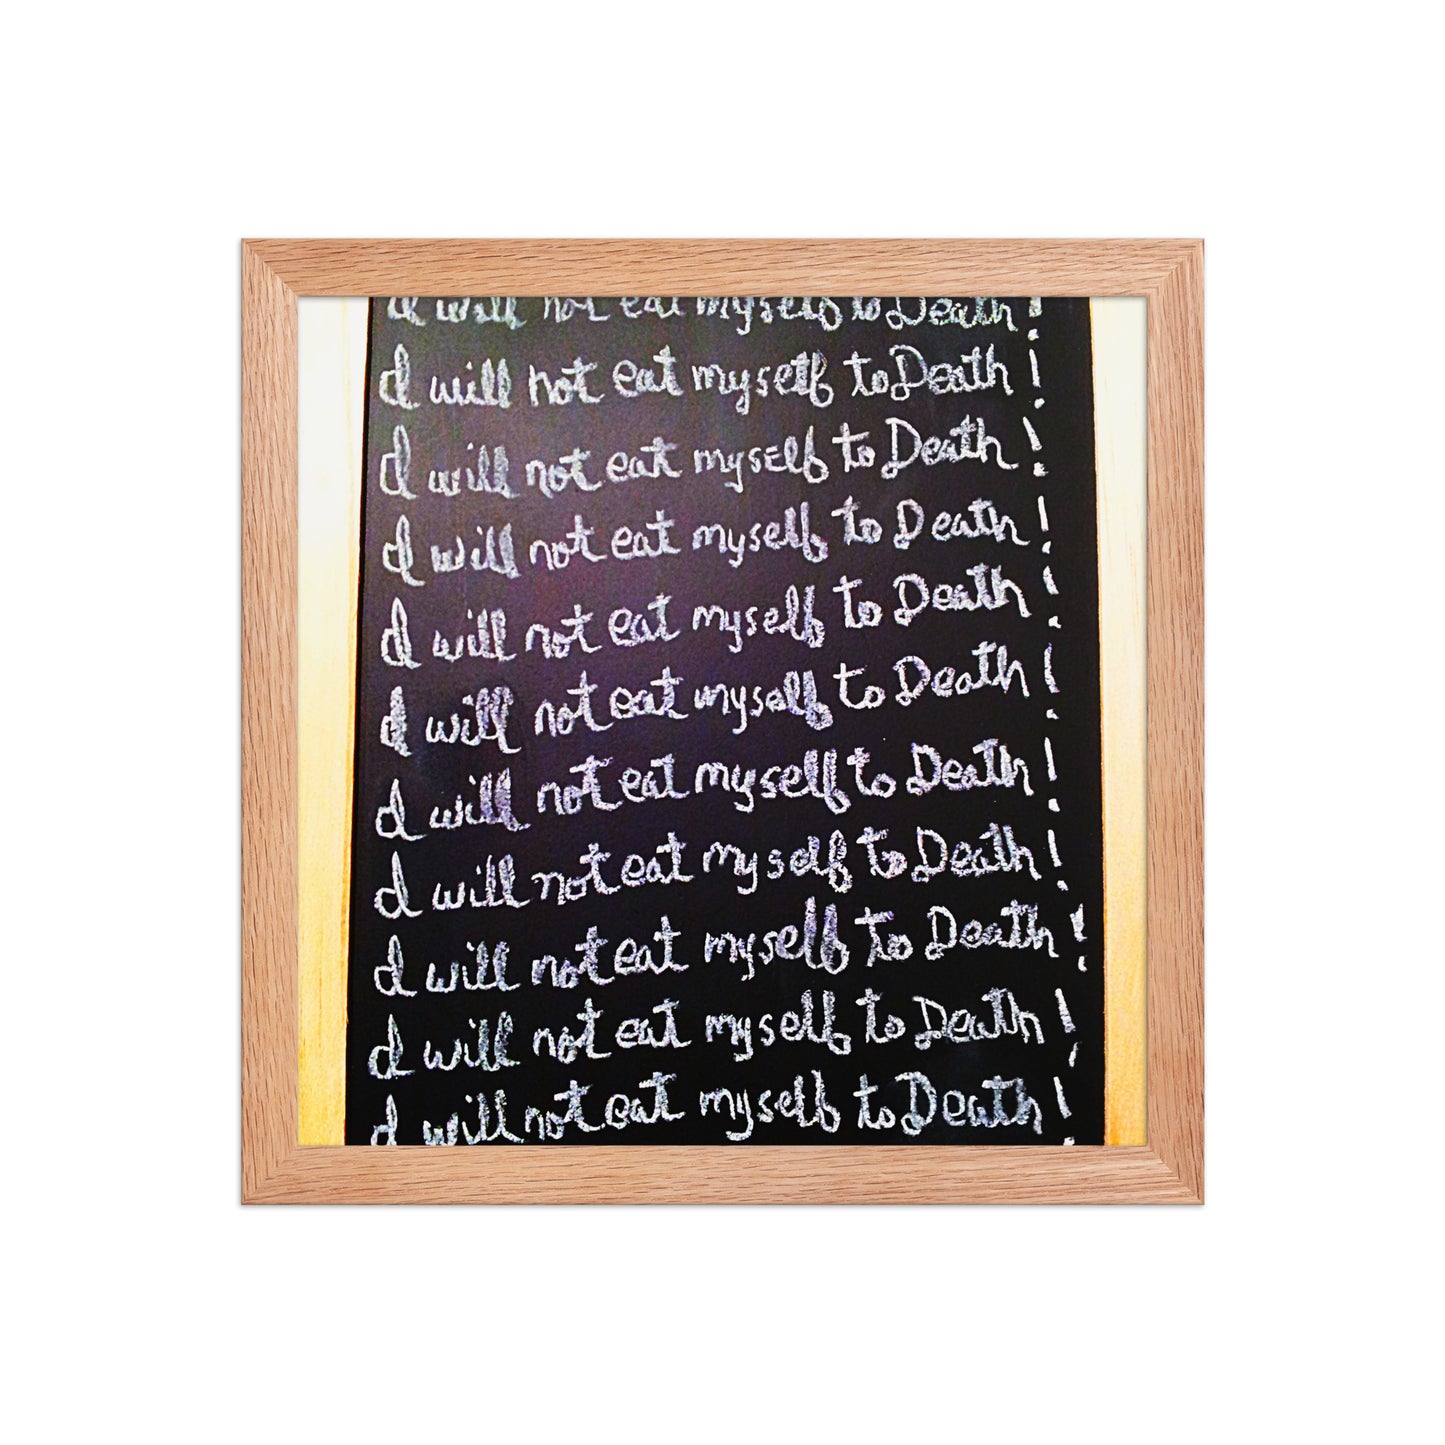 I will not eat myself to Death!
I will not eat myself to Death!
I will not eat myself to Death!
I will not eat myself to Death!
I will not eat myself to Death!
I will not eat myself to Death!
I will not eat myself to Death!
I will not eat myself to Death!
I will not eat myself to Death!
I will not eat myself to Death!
I will not eat myself to Death!